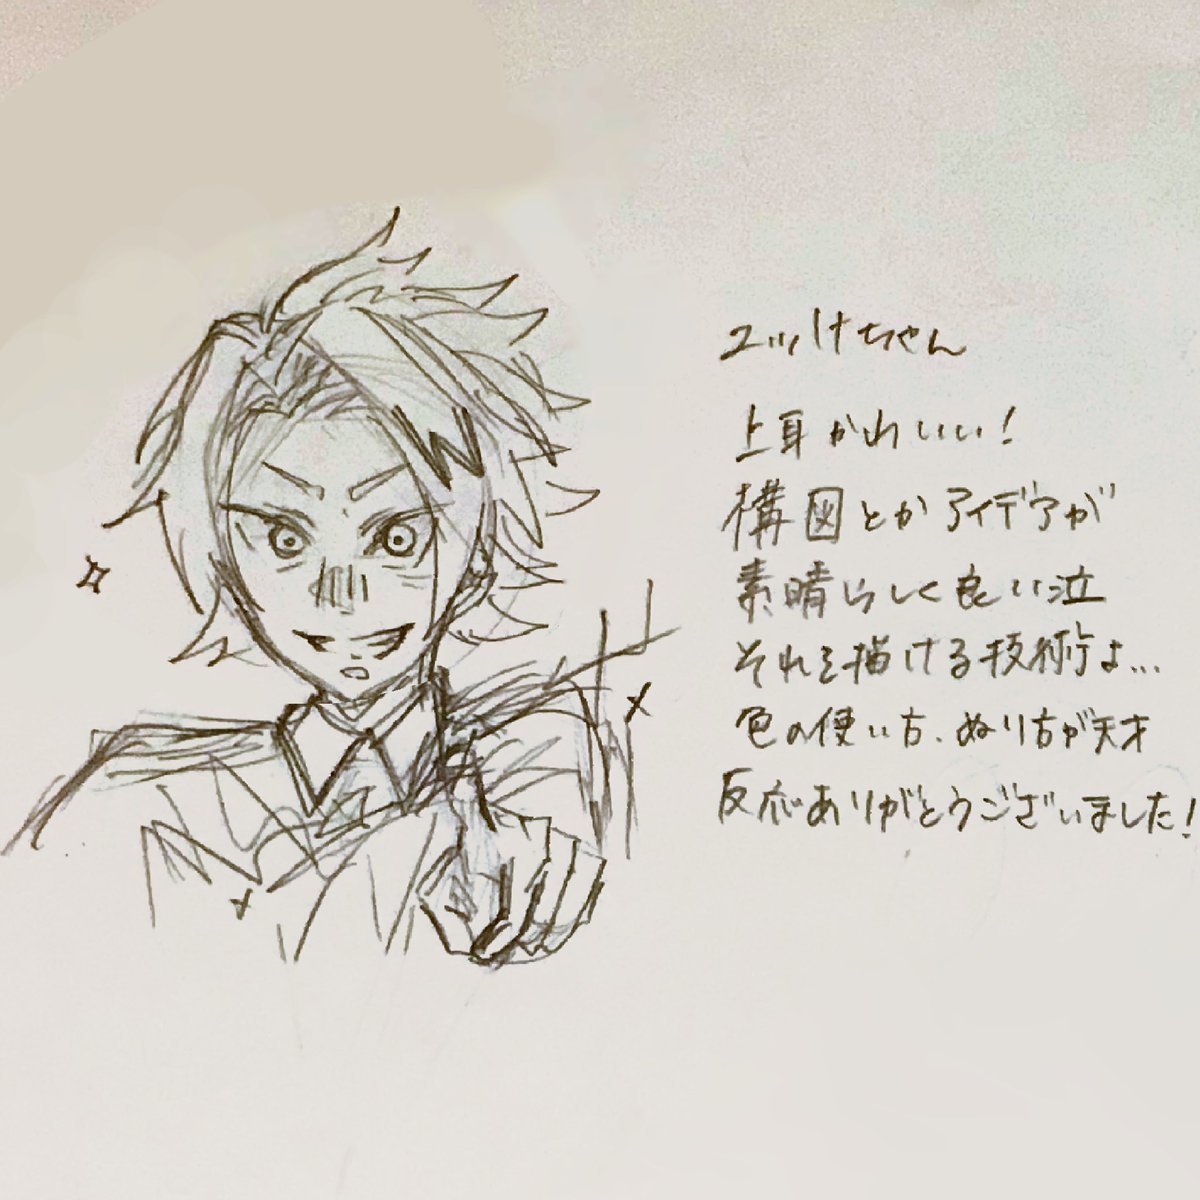 ユッけちゃん
上耳かわいい!
構図とかアイデアが
素晴らしく良い泣
それを描ける技術よ...
色の使い方、ぬり方が天才
反応ありがとうございました!